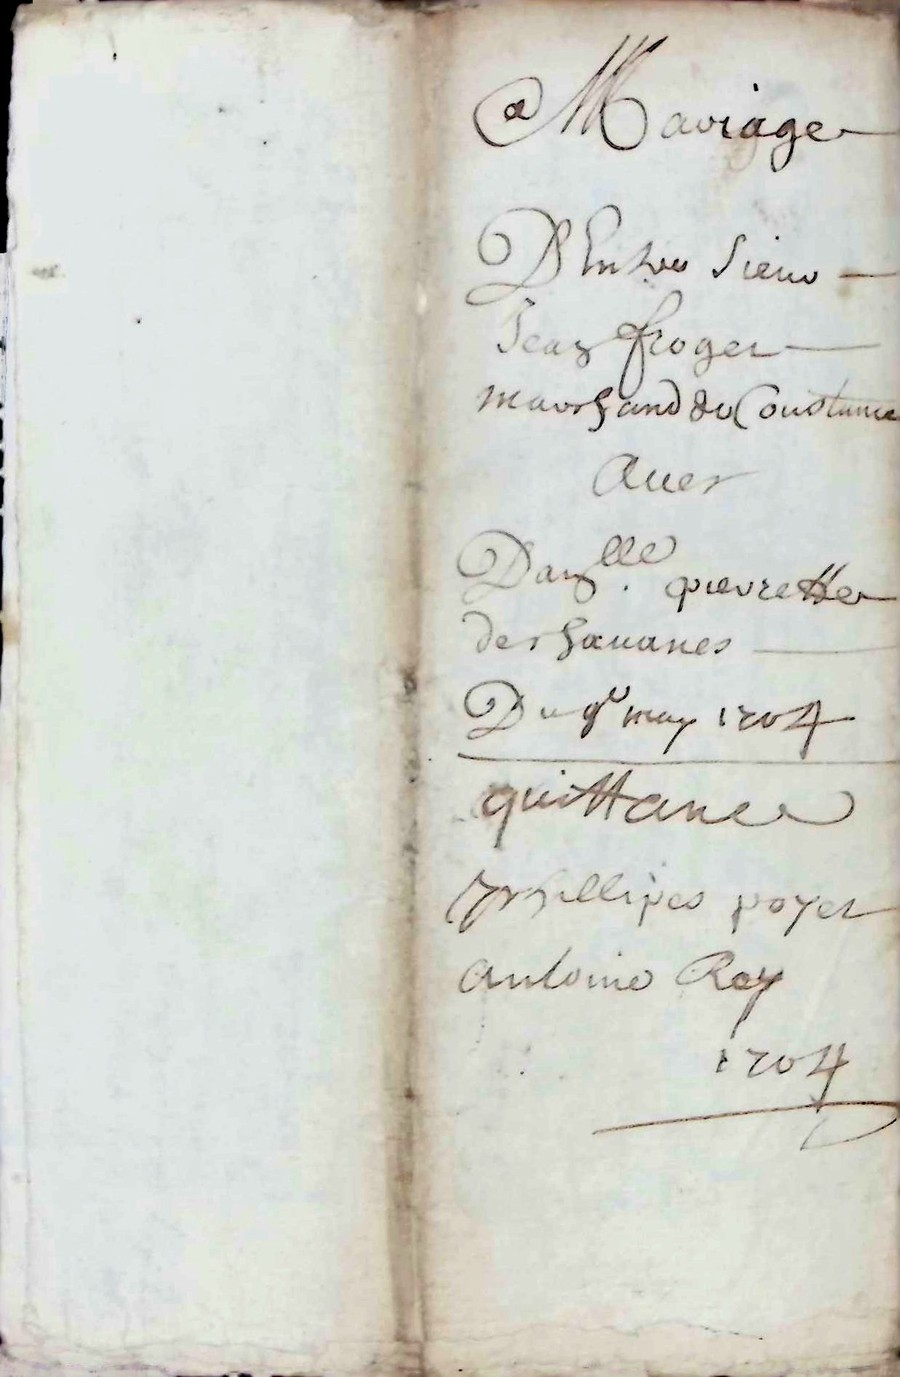 @ Mariage
D'Entre Sieur
Jean froger
marchand de Coustance
Avec
Dam<sup>lle</sup>. pierrette
deschavanes
Du 9<sup>e</sup> may 1704
quittance
phillipes poyet
Antoine Rey
1704